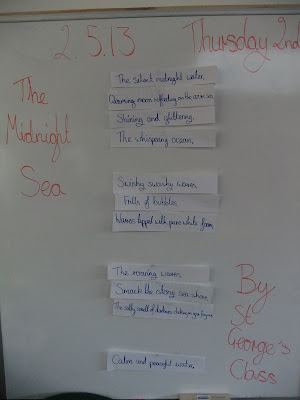 2.5.13 Thursday 2nd
The Midnight Sea
The silent midnight water,
Gleaming moon reflecting on the azure sea.
Shining and glittering,
The whispering ocean.
Swishy swashy waves
Frills of bubbles
Waves tipped with pure white foam
The roaring waves
Smack the stony sea shore
The salty smell of
Calm and peaceful water.
By St George's Class